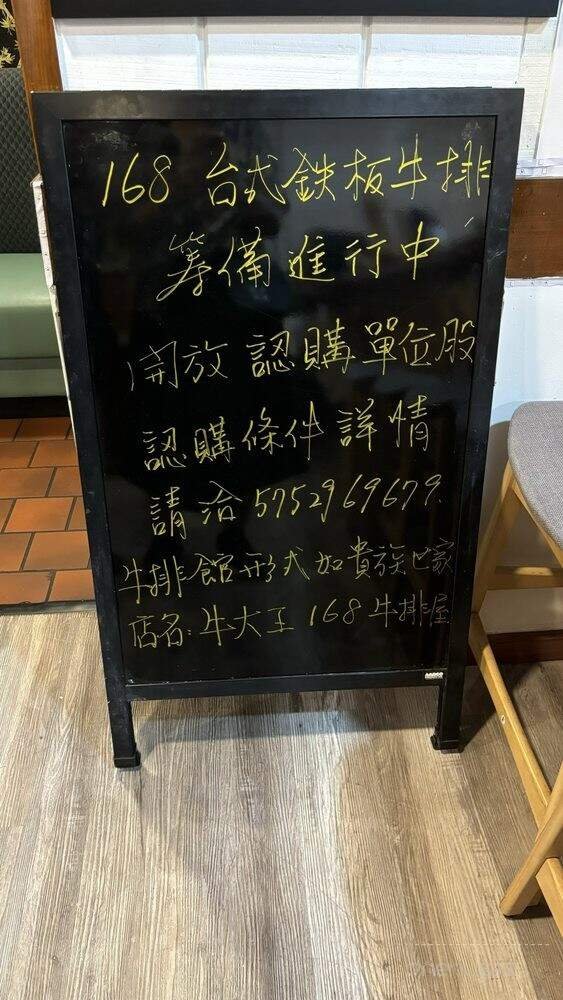 168 台式鉄板牛排
籌備進行中
開放認購單位股
認購條件詳情
請洽 5752969679
牛排館形式如貴族世家
店名:牛大王 168 牛排屋